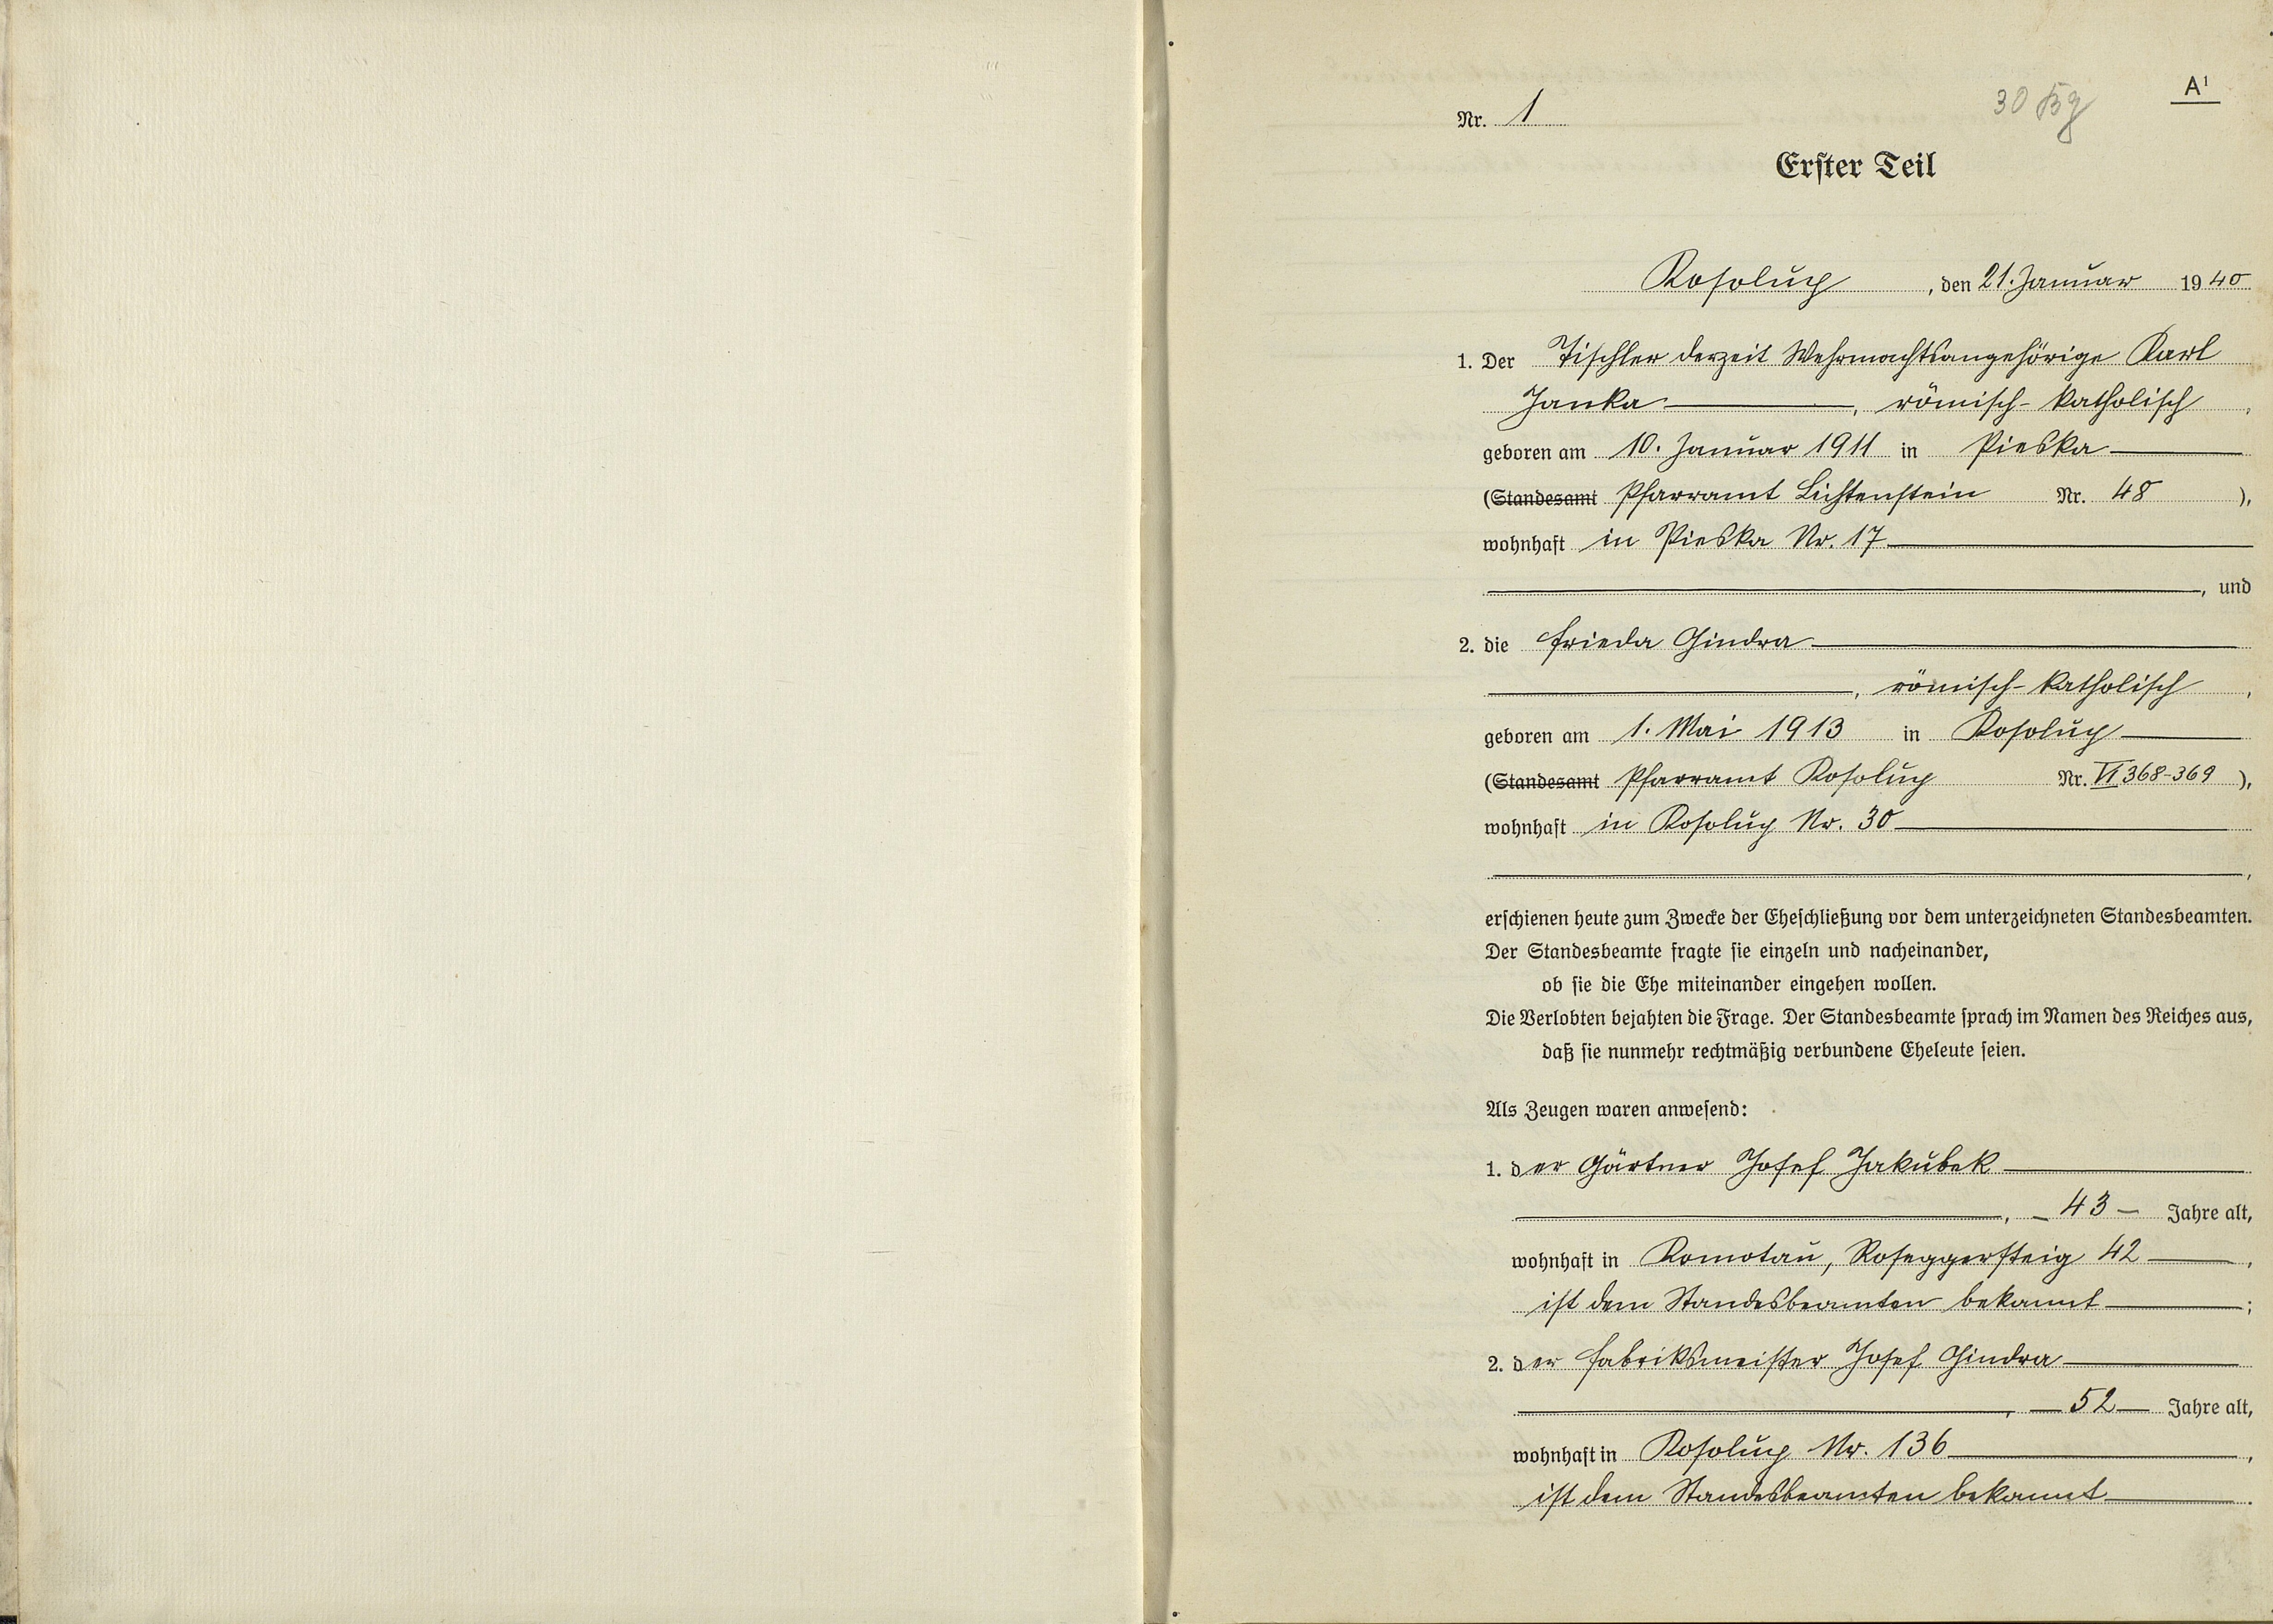 A¹
30 Bg
Nr. 1
Erster Teil
Kosolup, den 21. Januar 1940
1. Der Tischler derzeit Wehrmachtsangehörige Karl
Janka, römisch-katholisch,
geboren am 10. Januar 1911 in Pieska
(Standesamt Pfarramt Lichtenstein Nr. 48),
wohnhaft in Pieska Nr. 17
, und
2. die Frieda Hindra
, römisch-katholisch,
geboren am 1. Mai 1913 in Kosolup
(Standesamt Pfarramt Kosolup Nr. VI 368-369),
wohnhaft in Kosolup Nr. 30
,
erschienen heute zum Zwecke der Eheschließung vor dem unterzeichneten Standesbeamten.
Der Standesbeamte fragte sie einzeln und nacheinander,
ob sie die Ehe miteinander eingehen wollen.
Die Verlobten bejahten die Frage. Der Standesbeamte sprach im Namen des Reiches aus,
daß sie nunmehr rechtmäßig verbundene Eheleute seien.
Als Zeugen waren anwesend:
1. der Gärtner Josef Jakubek
, – 43 – Jahre alt,
wohnhaft in Komotau, Roseggersteig 42,
ist dem Standesbeamten bekannt;
2. der Fabriksmeister Josef Hindra
, – 52 – Jahre alt,
wohnhaft in Kosolup Nr. 136,
ist dem Standesbeamten bekannt.